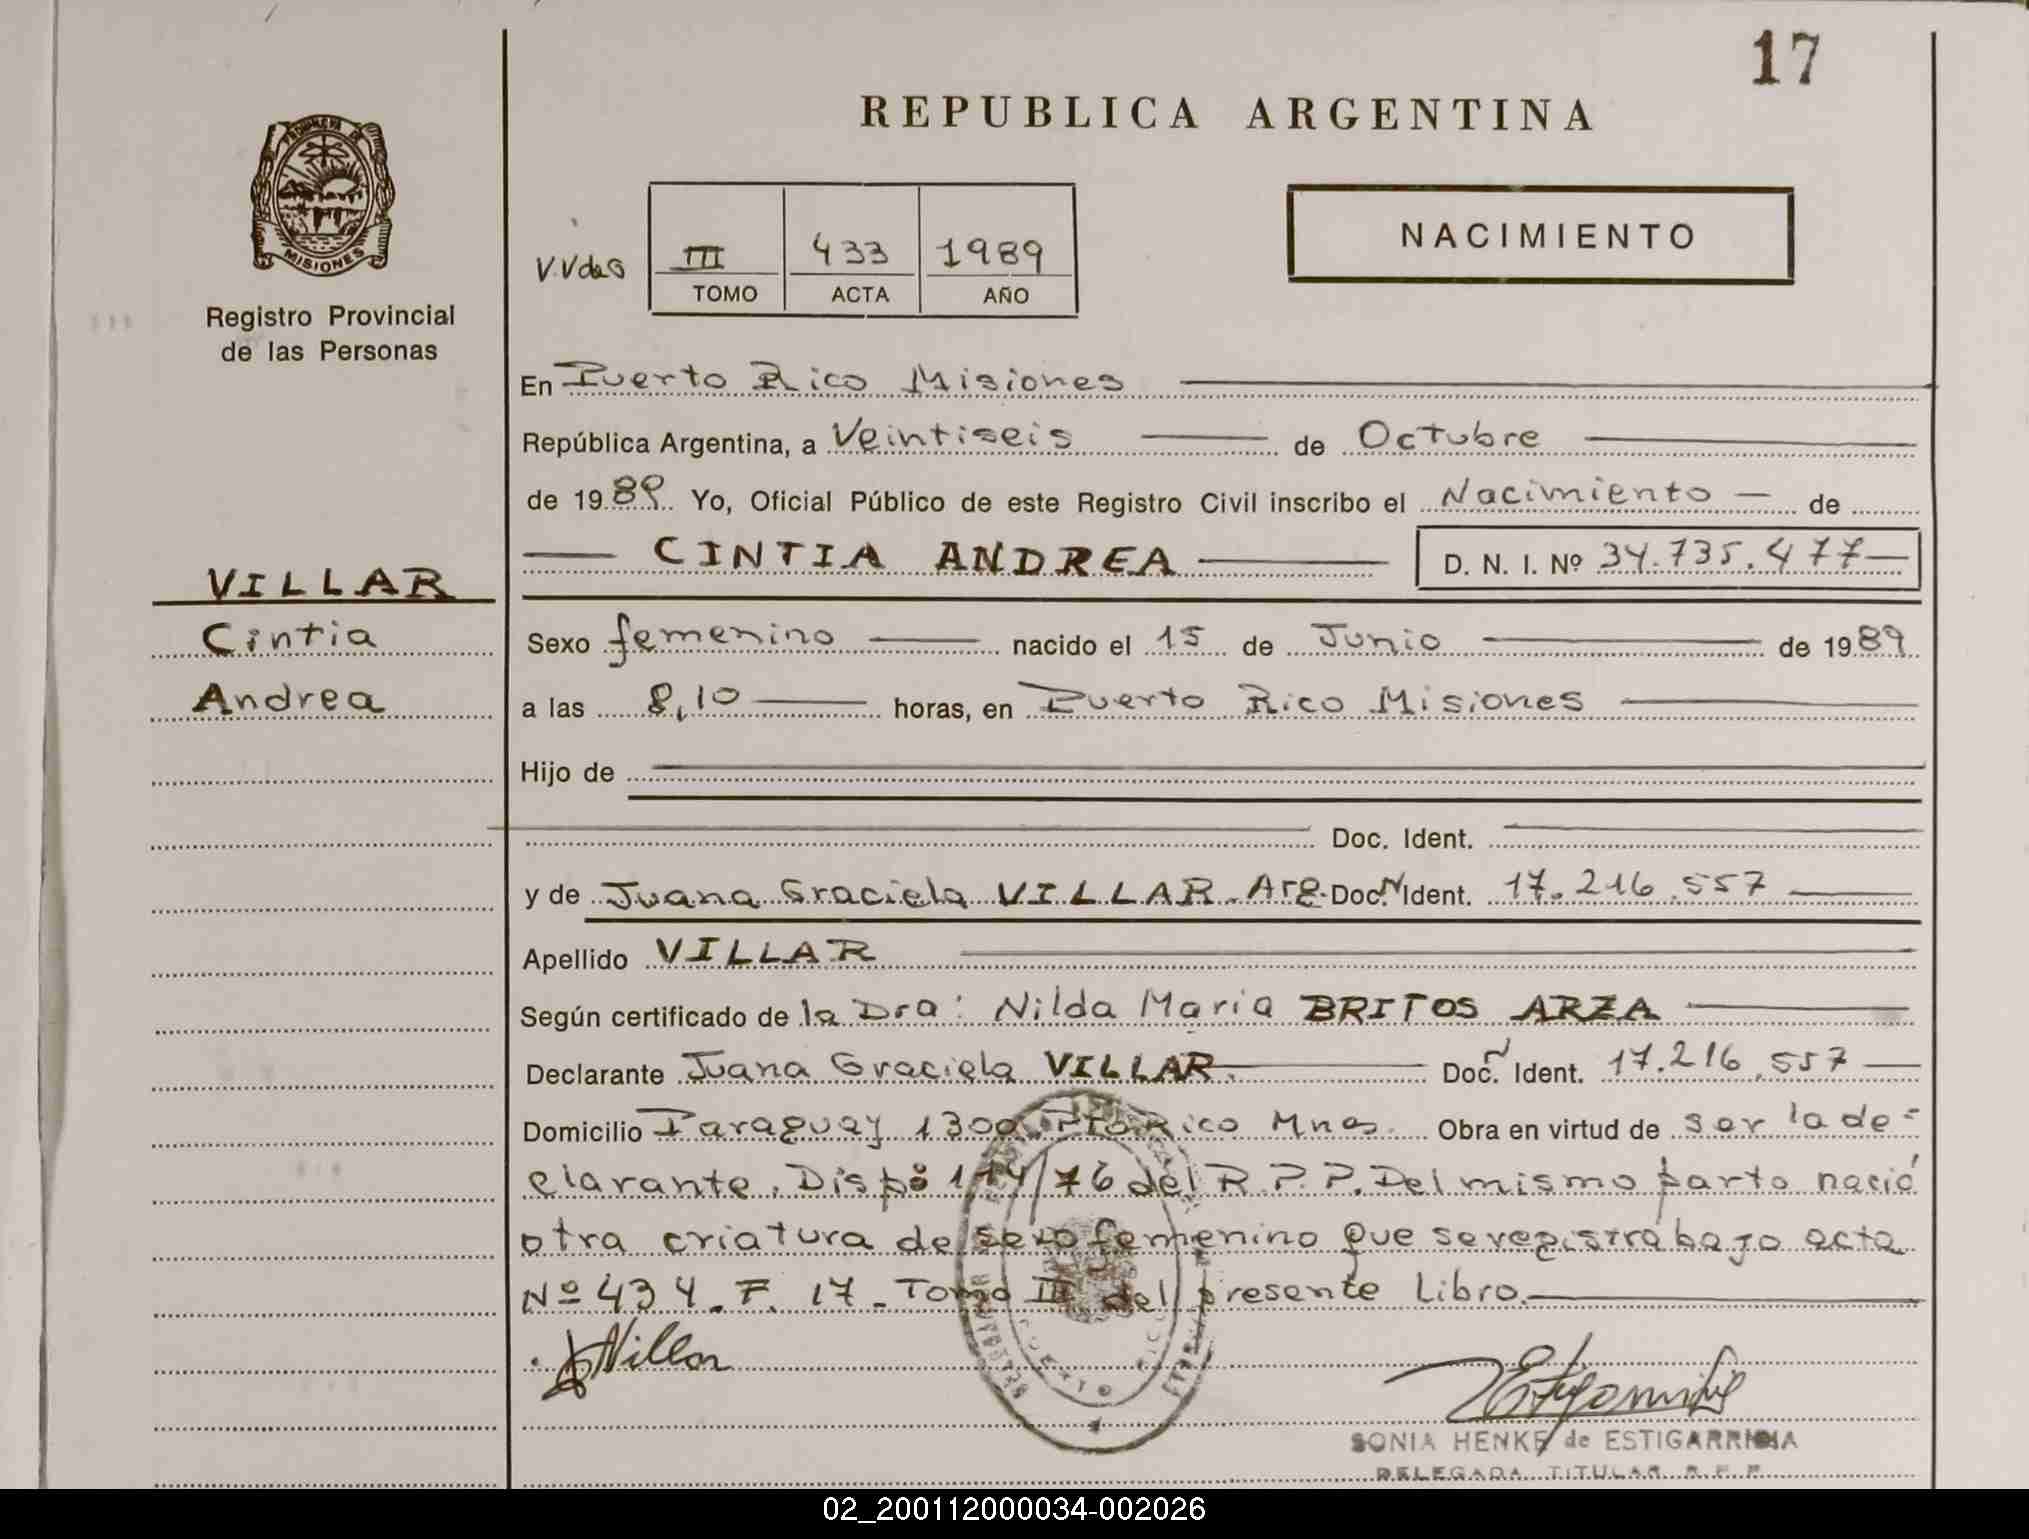 17
REPUBLICA ARGENTINA
PROVINCIA DE
MISIONES
Registro Provincial
de las Personas
III 433 1989
TOMO ACTA AÑO
NACIMIENTO
En Puerto Rico Misiones
República Argentina, a Veintiseis de Octubre
de 1989. Yo, Oficial Público de este Registro Civil inscribo el Nacimiento de
CINTIA ANDREA D. N. I. Nº 34.735.477
VILLAR
Cintia
Andrea
Sexo femenino nacido el 15 de Junio de 1989
a las 8,10 horas, en Puerto Rico Misiones
Hijo de
Doc. Ident.
y de Juana Graciela VILLAR. Arg. Doc. N Ident. 17.216.557
Apellido VILLAR
Según certificado de la Dra: Nilda Maria BRITOS ARZA
Declarante Juana Graciela VILLAR. Doc. N Ident. 17.216.557
Domicilio Paraguay 1300 Pto Rico Mnes. Obra en virtud de ser la de=
clarante. Dispo 114/76 del R.P.P. Del mismo parto nació
otra criatura de sexo femenino que se registra bajo acta
Nº 434. F. 17. Tomo III del presente Libro.
JVillar
SONIA HENKE de ESTIGARRIBIA
DELEGADA TITULAR R.P.P.
02_200112000034-002026